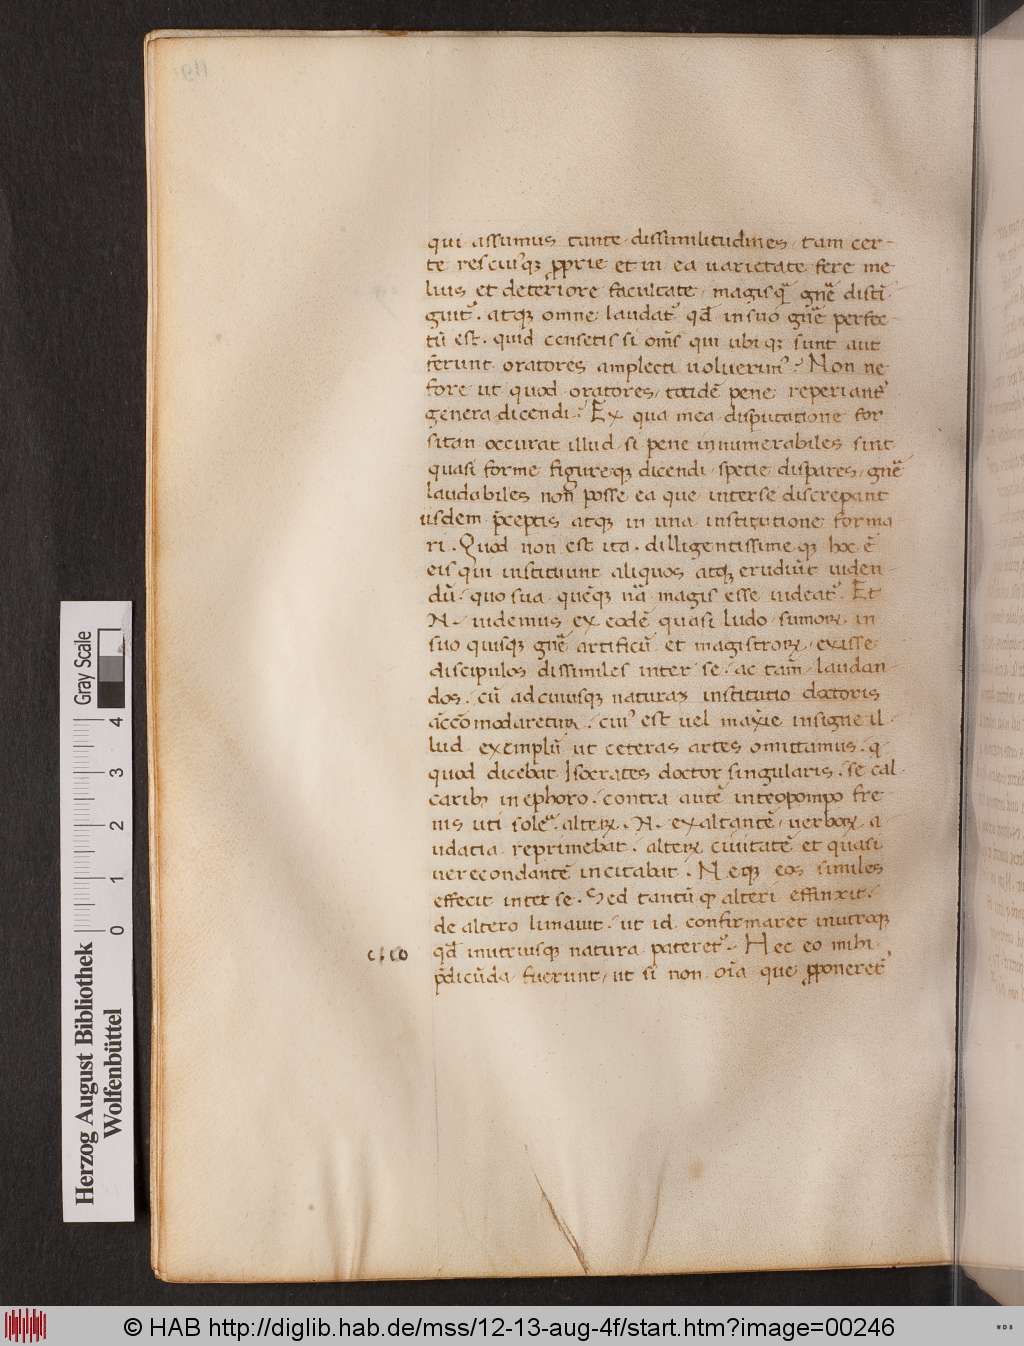 119
qui assumus tante dissimilitudines, tam cer-
te rei cuiusq; ꝓprie et in ea uarietate fere me
lius et deteriore facultate, magisq̄ gnē disti-
guit᷑. atq; omne laudat᷑ qđ in suo gnē perfec
tū est. quid censetis si oms̄ qui ubi q; sunt aut
ferunt oratores amplecti uoluerim᷒? Non ne
fore ut quod oratores, totidē pene reperiant᷑
genera dicendi? Ex qua mea disputatione for
sitan occurat illud, si pene innumerabiles sint
quasi forme figure q; dicendi, specie dispares, gnē
laudabiles non posse ea que inter se discrepant
iisdem p̄ceptis atq; in una institutione forma
ri. Quod non est ita. dilligentissime q; hoc ē
eis qui instituunt aliquos atq; erudiūt uiden-
dū. quo sua quēq; nā magis esse uideat᷑. Et
N. uidemus ex eodē quasi ludo sumoꝝ in
suo quisq; gnē artificū et magistroꝝ, exisse
discipulos dissimiles inter se. ac tam̄ laudan-
dos. cū ad cuiusq; naturaꝫ institutio doctoris
ac̄comodaretur. cui᷒ est uel max̄ie insigne il-
lud exemplū ut ceteras artes omittamus. q
quod dicebat Isocrates doctor singularis. se cal-
carib; in ephoro. contra autē in teopompo fre
nis uti soleē. alteꝝ. N. exaltantē uerboꝝ a
udacia reprimebat. alteꝝ ciuitatē et quasi
uerecondantē incitabat. Neq; eos similes
effecit inter se. Sed tantū qꝫ alteri effinxit.
de altero limauit. ut id confirmaret inutroq;
qđ inutriusq; natura pateret᷑. Hec eo mihi
p̄dicūda fuerunt, ut si non oīa que ꝓponeret᷑
Gray Scale
0 1 2 3 4
Herzog August Bibliothek
Wolfenbüttel
© HAB http://diglib.hab.de/mss/12-13-aug-4f/start.htm?image=00246